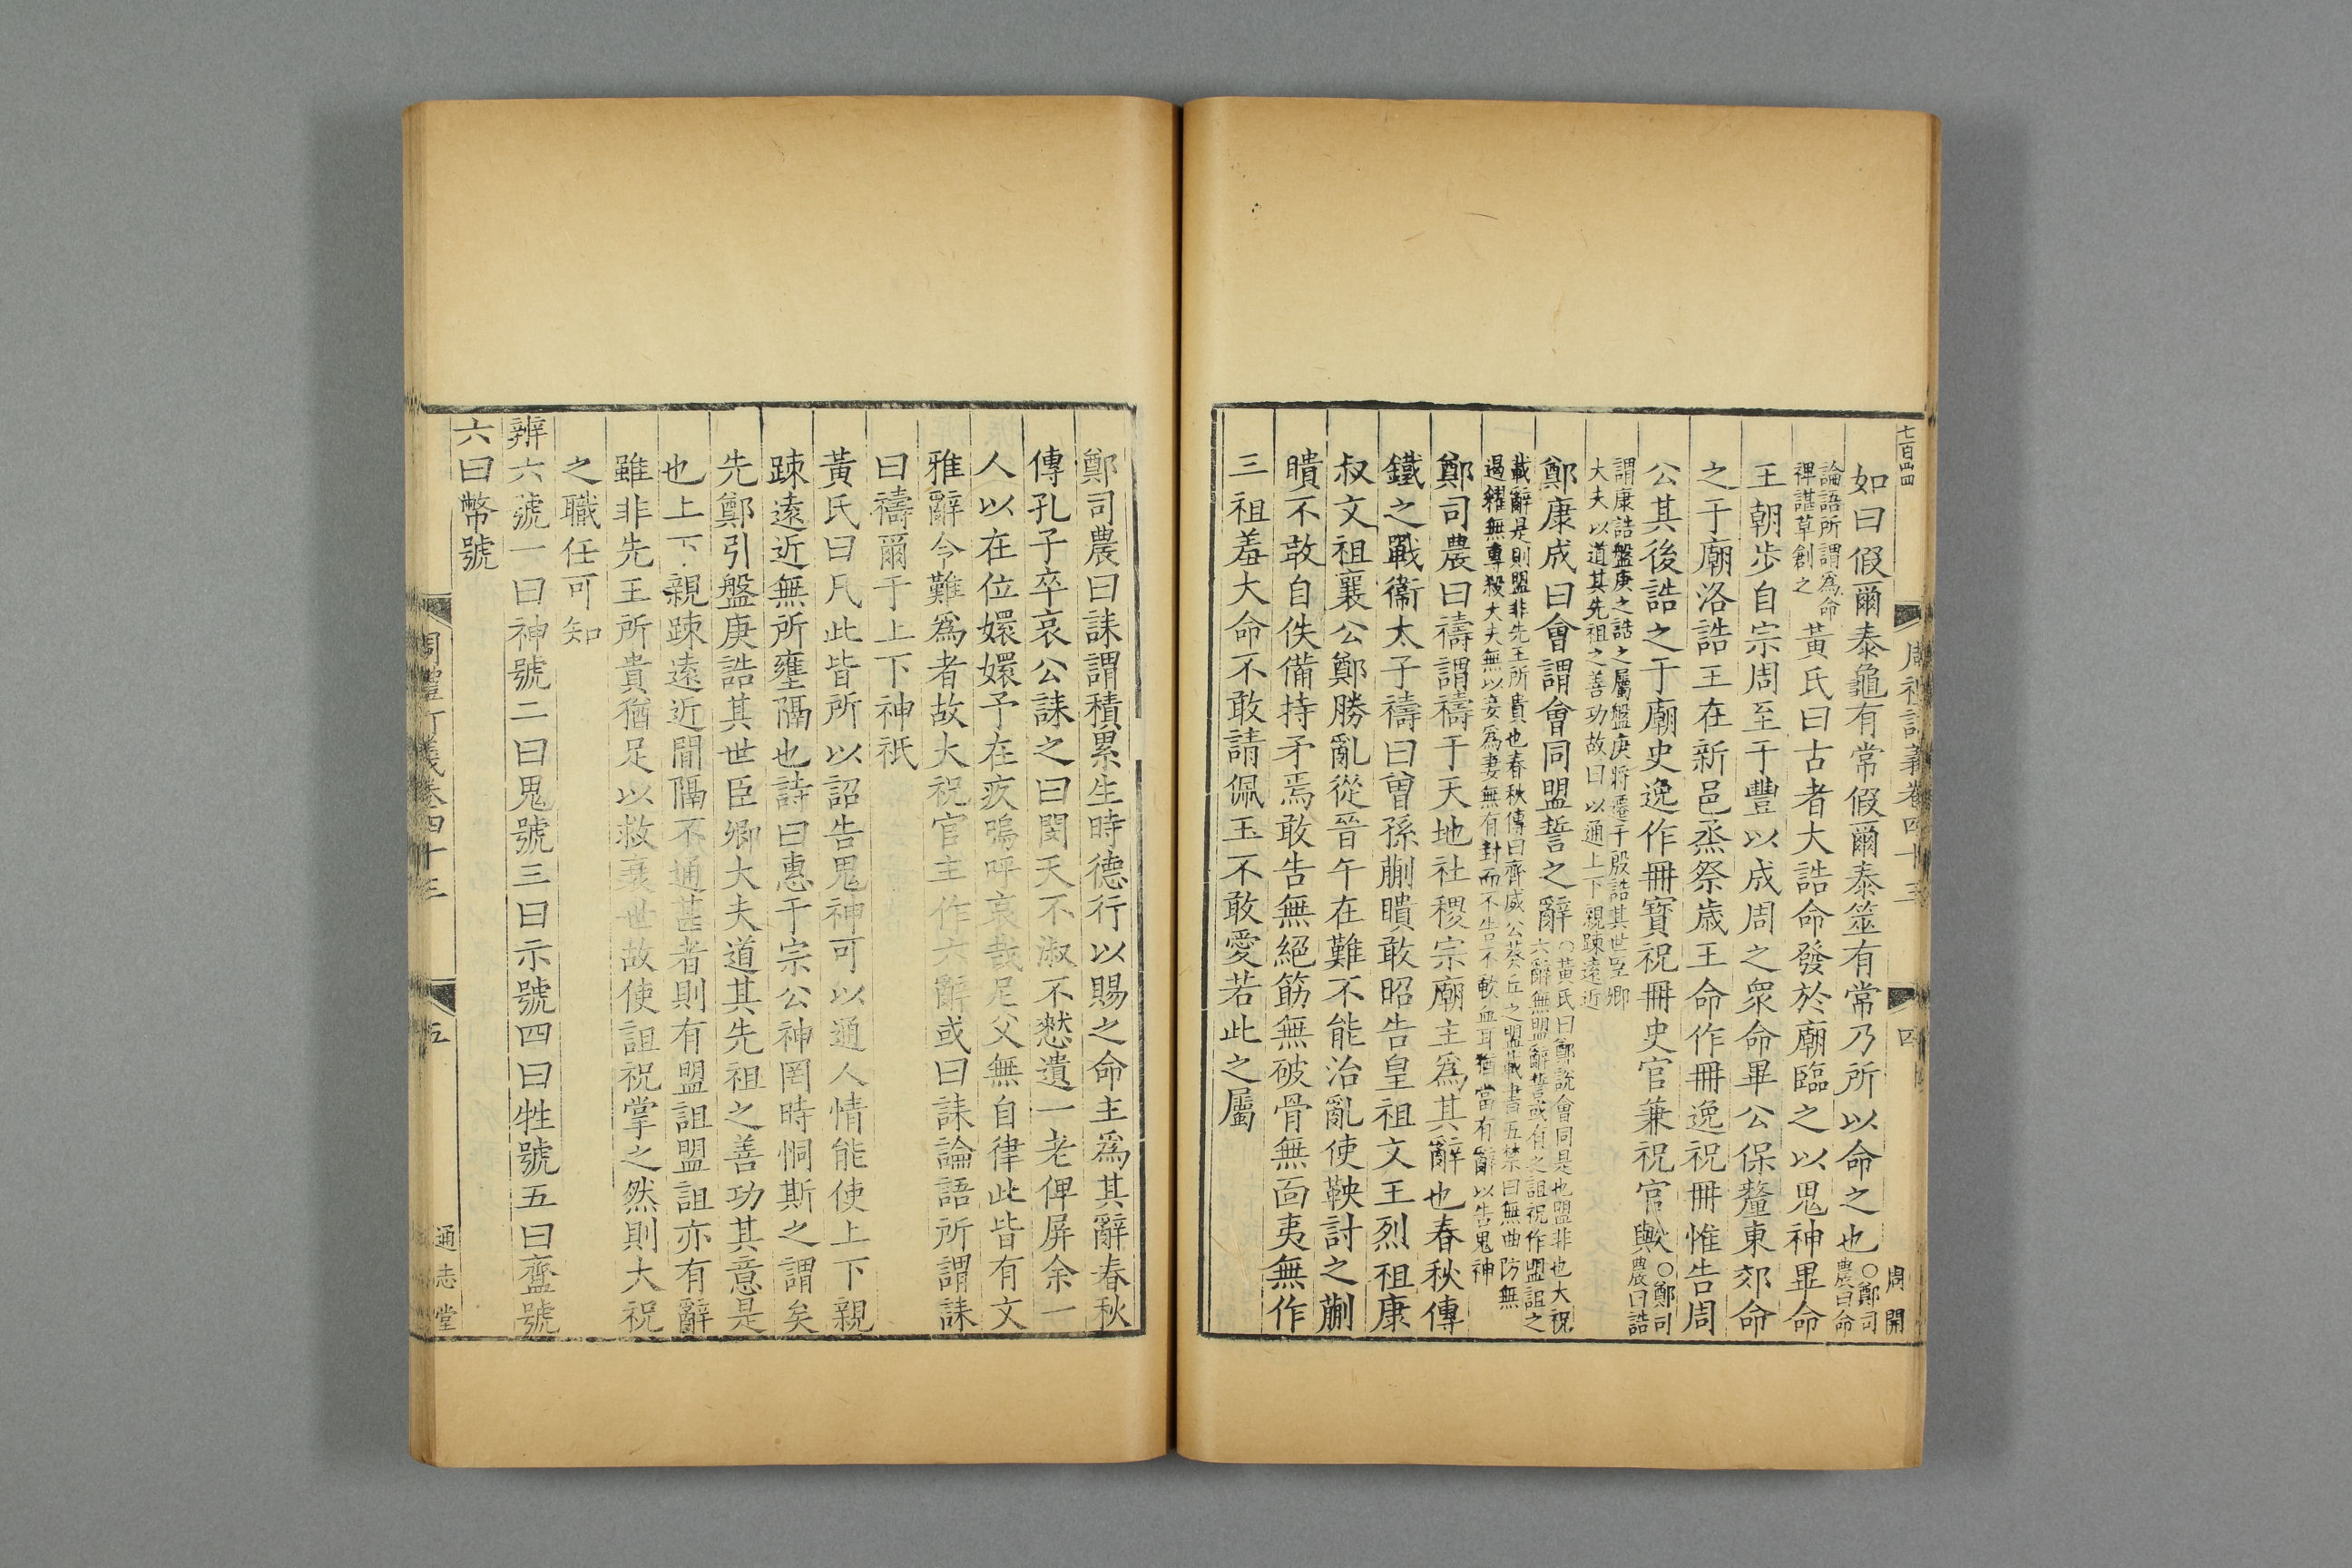 七百四四
周禮訂義卷四十三
四
周開
如曰假爾泰龜有常假爾泰筮有常乃所以命之也○鄭司農曰命
論語所謂爲命裨諶草創之黃氏曰古者大誥命發於廟臨之以鬼神畢命
王朝步自宗周至于豐以成周之衆命畢公保釐東郊命
之于廟洛誥王在新邑烝祭歲王命作冊逸祝冊惟告周
公其後誥之于廟史逸作冊寶祝冊史官兼祝官歟○鄭司農曰誥
謂康誥盤庚之誥之屬盤庚將遷于殷誥其世臣卿大夫以道其先祖之善功故曰以通上下親踈遠近
鄭康成曰會謂會同盟誓之辭○黃氏曰鄭說會同是也盟非也大祝六辭無盟辭誓或有之詛祝作盟詛之
載辭是則盟非先王所貴也春秋傳曰齊威公葵丘之盟載書五禁曰無曲防無遏糴無專殺大夫無以妾爲妻無有封而不告不歃血耳猶當有辭以告鬼神
鄭司農曰禱謂禱于天地社稷宗廟主爲其辭也春秋傳
鐵之戰衞太子禱曰曾孫蒯聵敢昭告皇祖文王烈祖康
叔文祖襄公鄭勝亂從晉午在難不能治亂使鞅討之蒯
聵不敢自佚備持矛焉敢告無絕筋無破骨無面夷無作
三祖羞大命不敢請佩玉不敢愛若此之屬
鄭司農曰誄謂積累生時德行以賜之命主爲其辭春秋
傳孔子卒哀公誄之曰閔天不淑不憖遺一老俾屏余一
人以在位嬛嬛予在疚嗚呼哀哉尼父無自律此皆有文
雅辭令難爲者故大祝官主作六辭或曰誄論語所謂誄
曰禱爾于上下神祇
黃氏曰凡此皆所以詔告鬼神可以通人情能使上下親
踈遠近無所壅隔也詩曰惠于宗公神罔時恫斯之謂矣
先鄭引盤庚誥其世臣卿大夫道其先祖之善功其意是
也上下親踈遠近間隔不通甚者則有盟詛盟詛亦有辭
雖非先王所貴猶足以救衰世故使詛祝掌之然則大祝
之職任可知
辨六號一曰神號二曰鬼號三曰示號四曰牲號五曰齍號
六曰幣號
周禮訂義卷四十三
五
通志堂